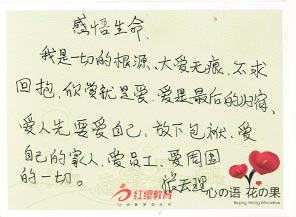 感悟生命.
我是一切的根源、大爱无痕、不求
回抱,欣赏就是爱.爱是最后的归宿.
爱人先要爱自己,放下包袱、爱
自己的家人,爱员工,爱周围
的一切。
红缨教育
心の语 花の果